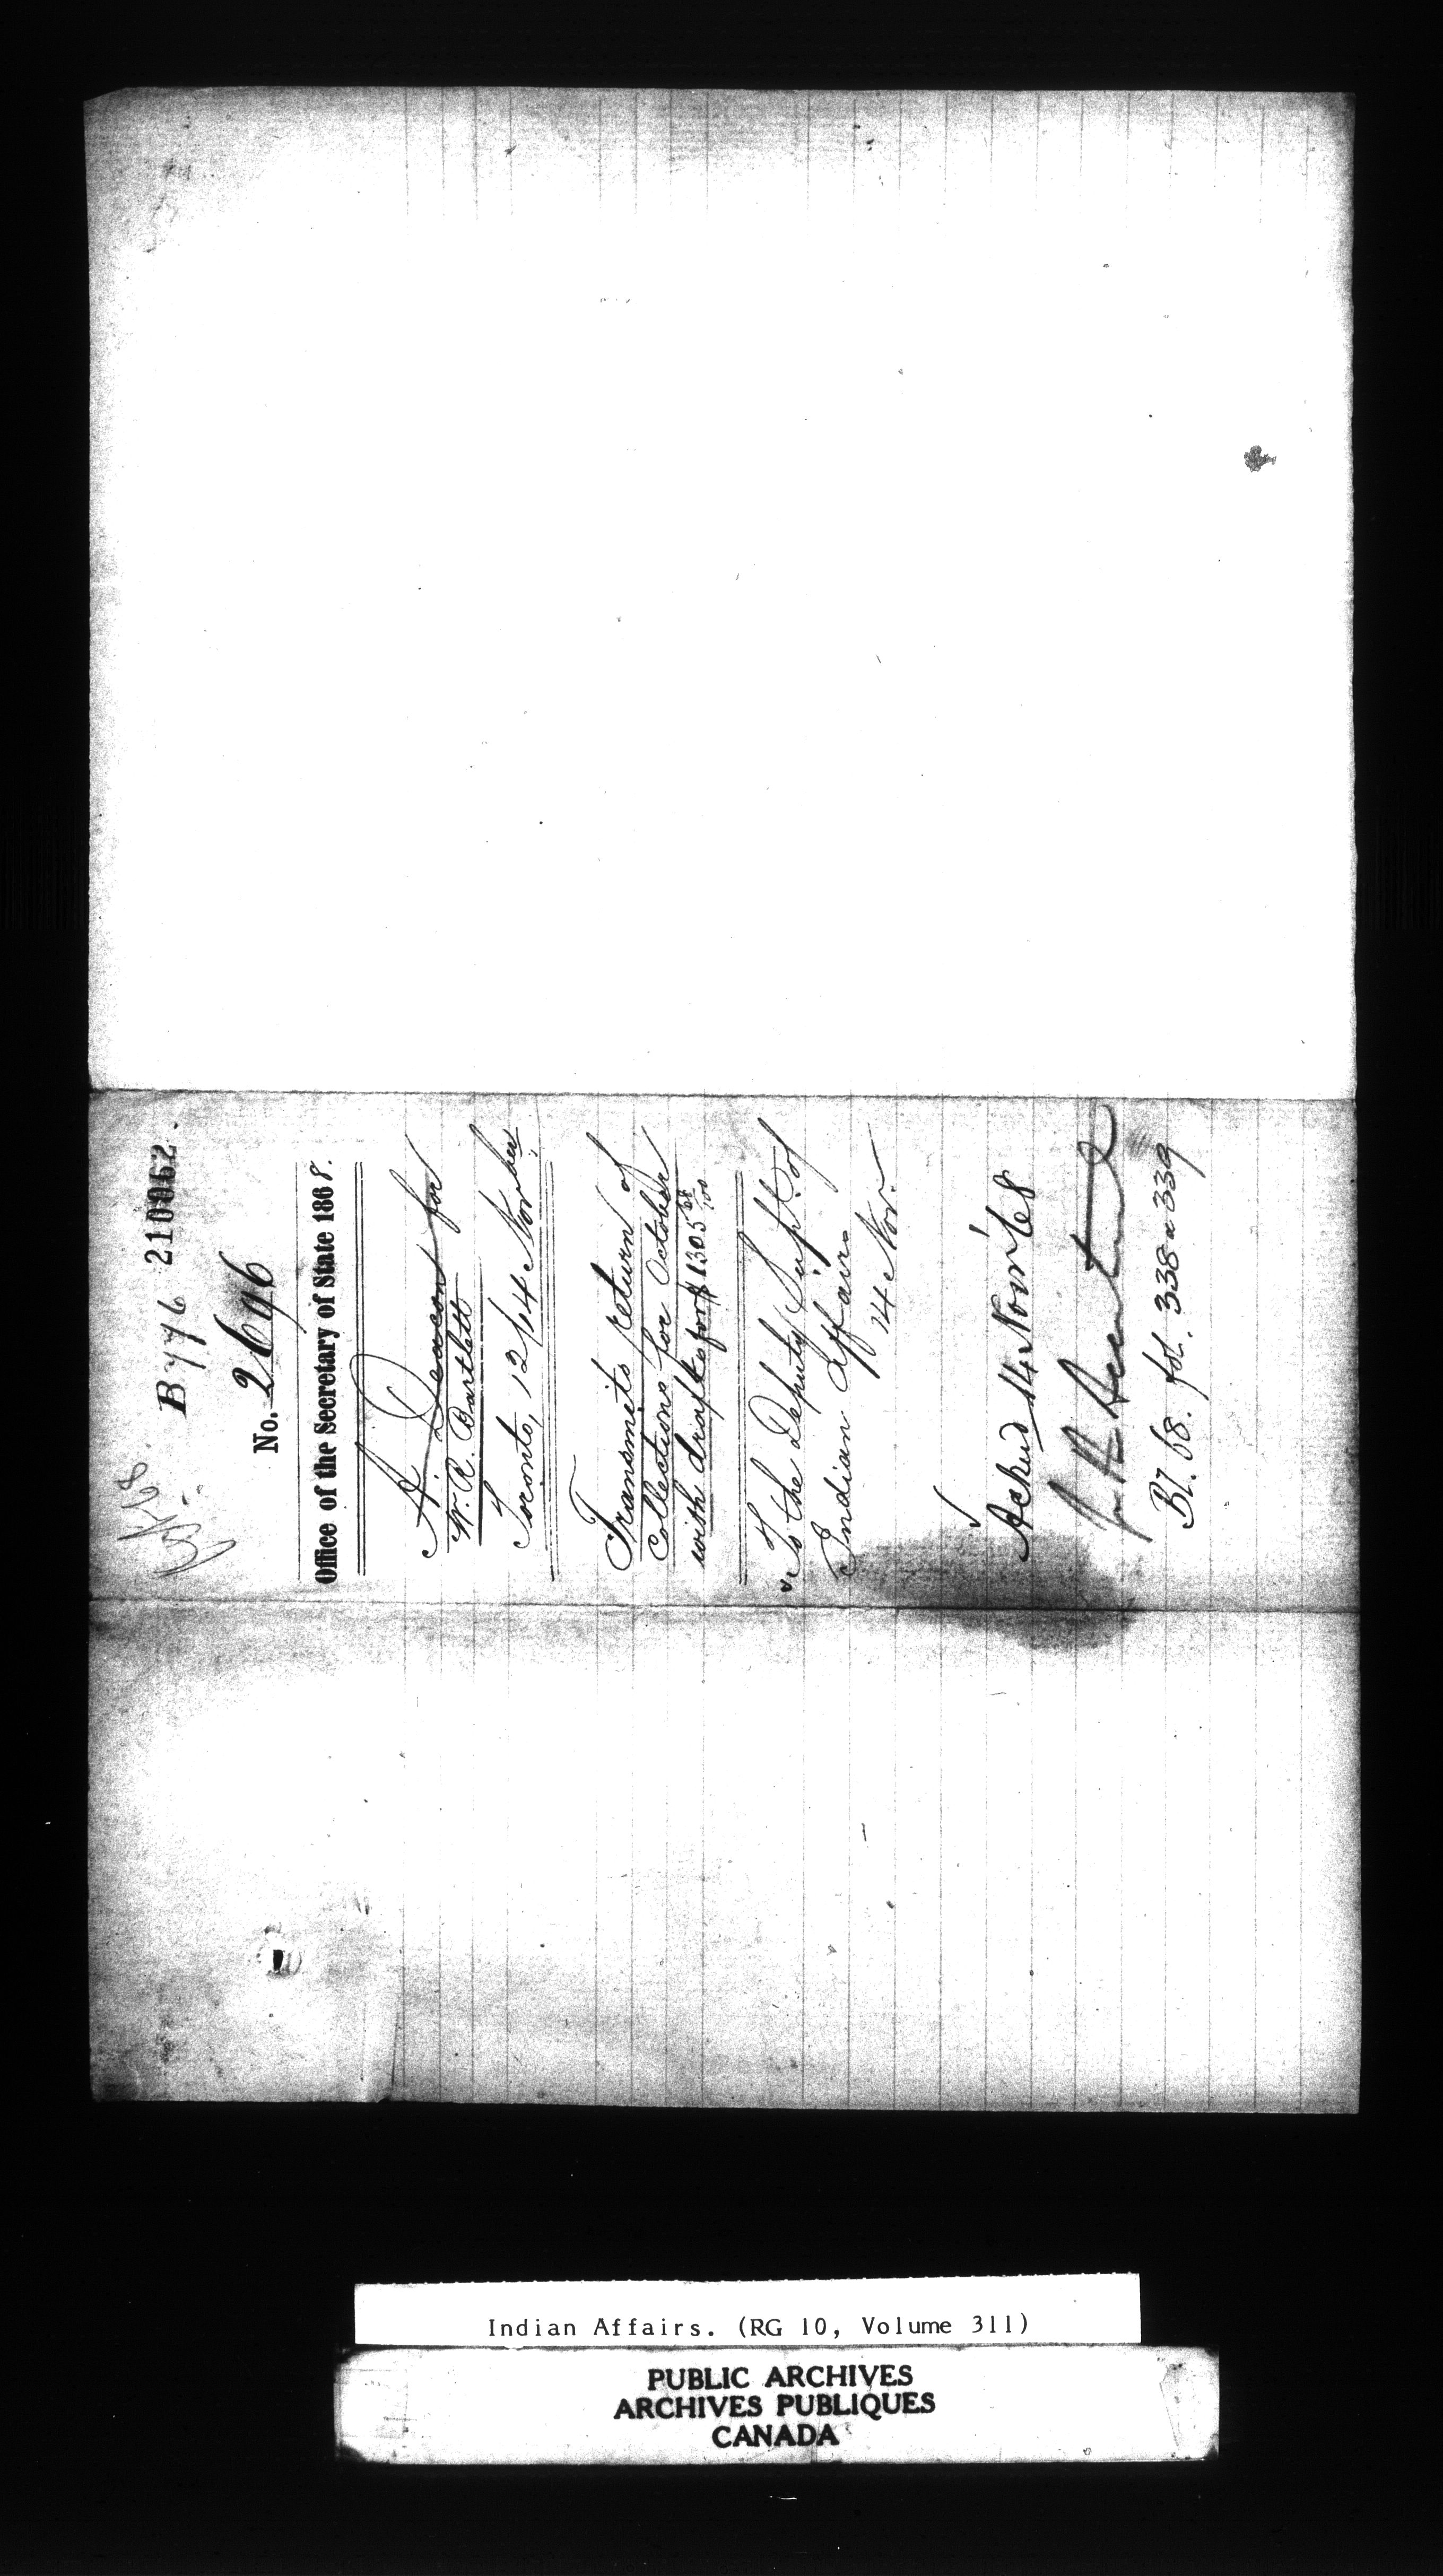 210062.
B 776
No. 2696
Office of the Secretary of State 1868.
A. Deacon for
W. R. Bartlett
Toronto, 12/14 November
Transmits return of
Collections for October
with drafts for $1305 68/100
To the Deputy Supt. of
Indian Affairs
14 Nov.
Ackned 14 Novr 68
Bl. 68. fol. 338 a 339
Indian Affairs. (RG 10, Volume 311)
PUBLIC ARCHIVES
ARCHIVES PUBLIQUES
CANADA